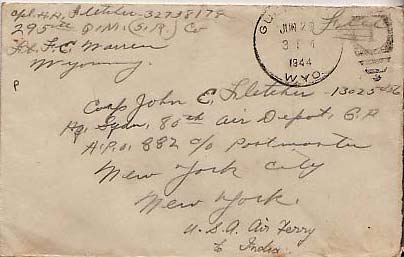 Cpl. H.H. Fletcher - 32738178
295th Q.M. (S.R.) Co
Ft. F.E. Warren
Wyoming.
JUN 29
1944
WYO.
Corp John E. Fletcher - 13025
Hq. Sqdn, 80th Air Depot, G.P.
A.P.O. 882 c/o Postmaster
New York City
New York.
U.S.A. Air Ferry
to India.